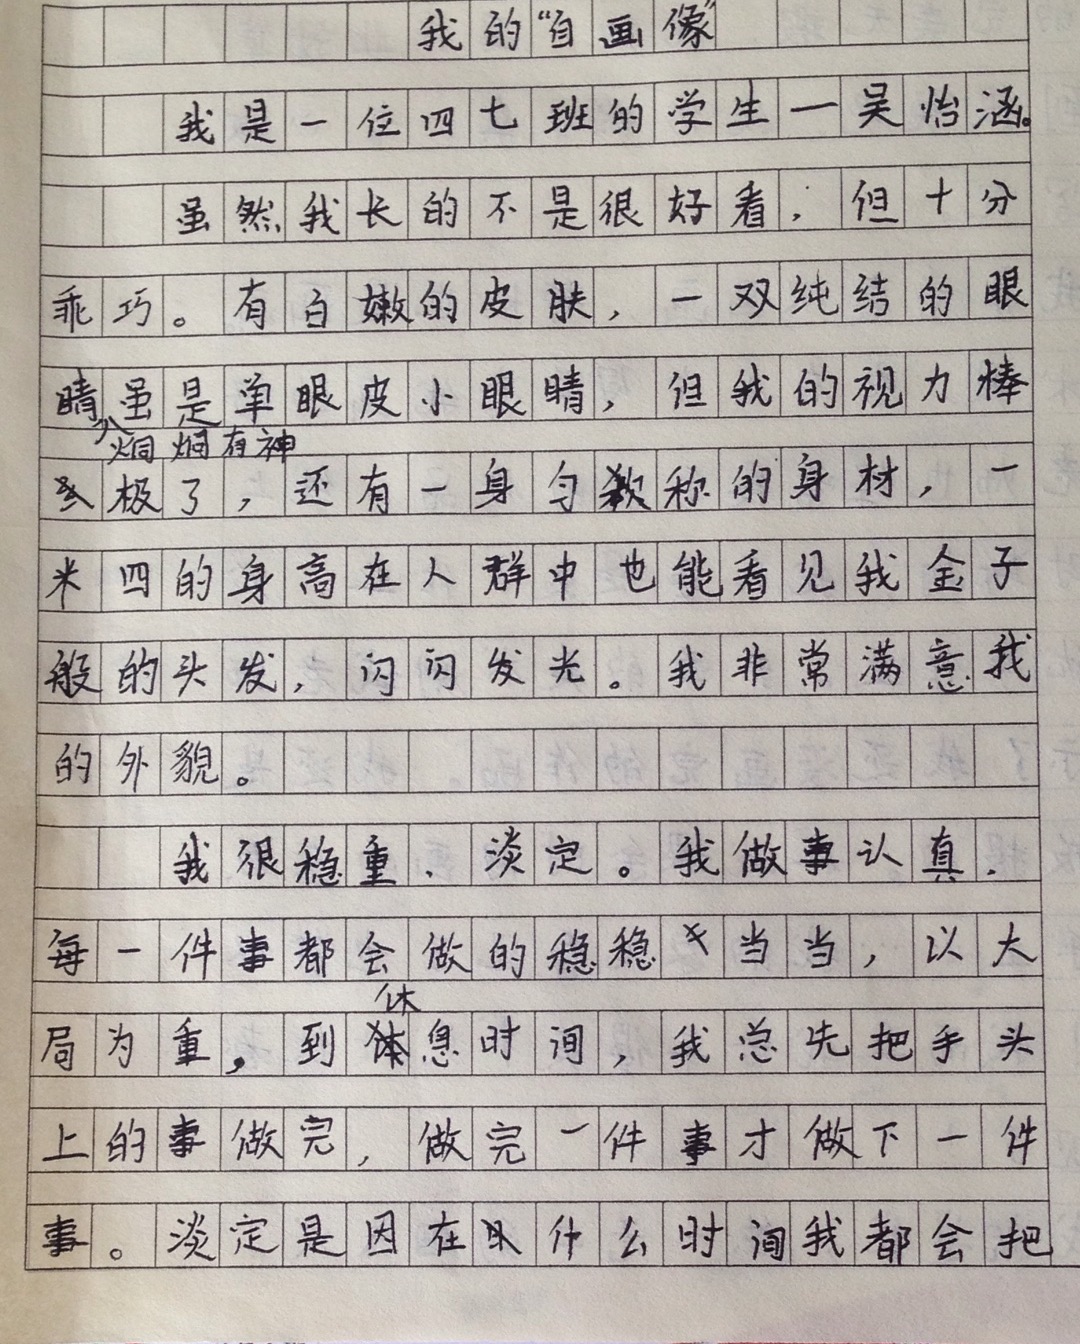 我的“自画像”
我是一位四七班的学生一吴怡涵。
虽然我长的不是很好看，但十分
乖巧。有白嫩的皮肤，一双纯结的眼
睛炯炯有神虽是单眼皮小眼睛，但我的视力棒
极了，还有一身匀称的身材，一
米四的身高在人群中也能看见我金子
般的头发，闪闪发光。我非常满意我
的外貌。
我很稳重、淡定。我做事认真，
每一件事都会做的稳稳当当，以大
局为重，到休息时间，我总先把手头
上的事做完，做完一件事才做下一件
事。淡定是因在什么时间我都会把